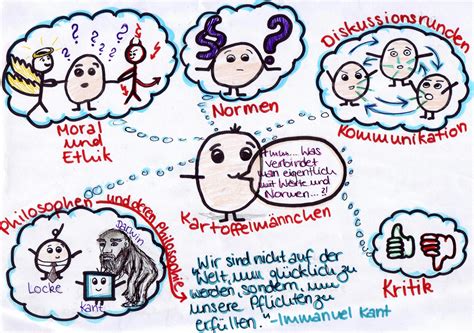 ? ? ? ?
Moral und
Ethik
§ ?
Normen
Diskussionsrunden
Kommunikation
Hmm... Was
verbindet
man eigentlich
mit Werte und
Normen...?!
Kartoffelmännchen
Philosophen und deren Philosophie
Locke
Kant
Darwin
"Wir sind nicht auf der
Welt, um glücklich zu
werden, sondern, um
unsere Pflichten zu
erfüllen." -Immanuel Kant
Kritik